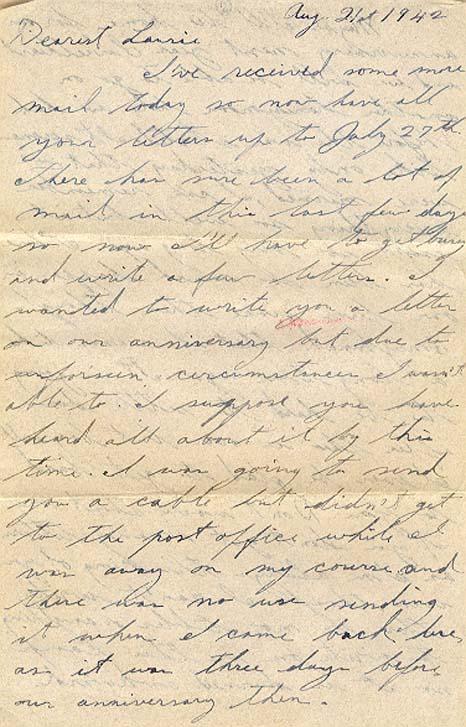 Aug. 21st 1942
Dearest Laurie
I've received some more
mail today so now have all
your letters up to July 27th.
There has sure been a lot of
mail in this last few days
so now I'll have to get busy
and write a few letters. I
wanted to write you a letter
on our anniversary but due to
unforseen circumstances I wasn't
able to. I suppose you have
heard all about it by this
time. I was going to send
you a cable but didn't get
to the post office while I
was away on my course and
there was no use sending
it when I came back here
as it was three days before
our anniversary then.